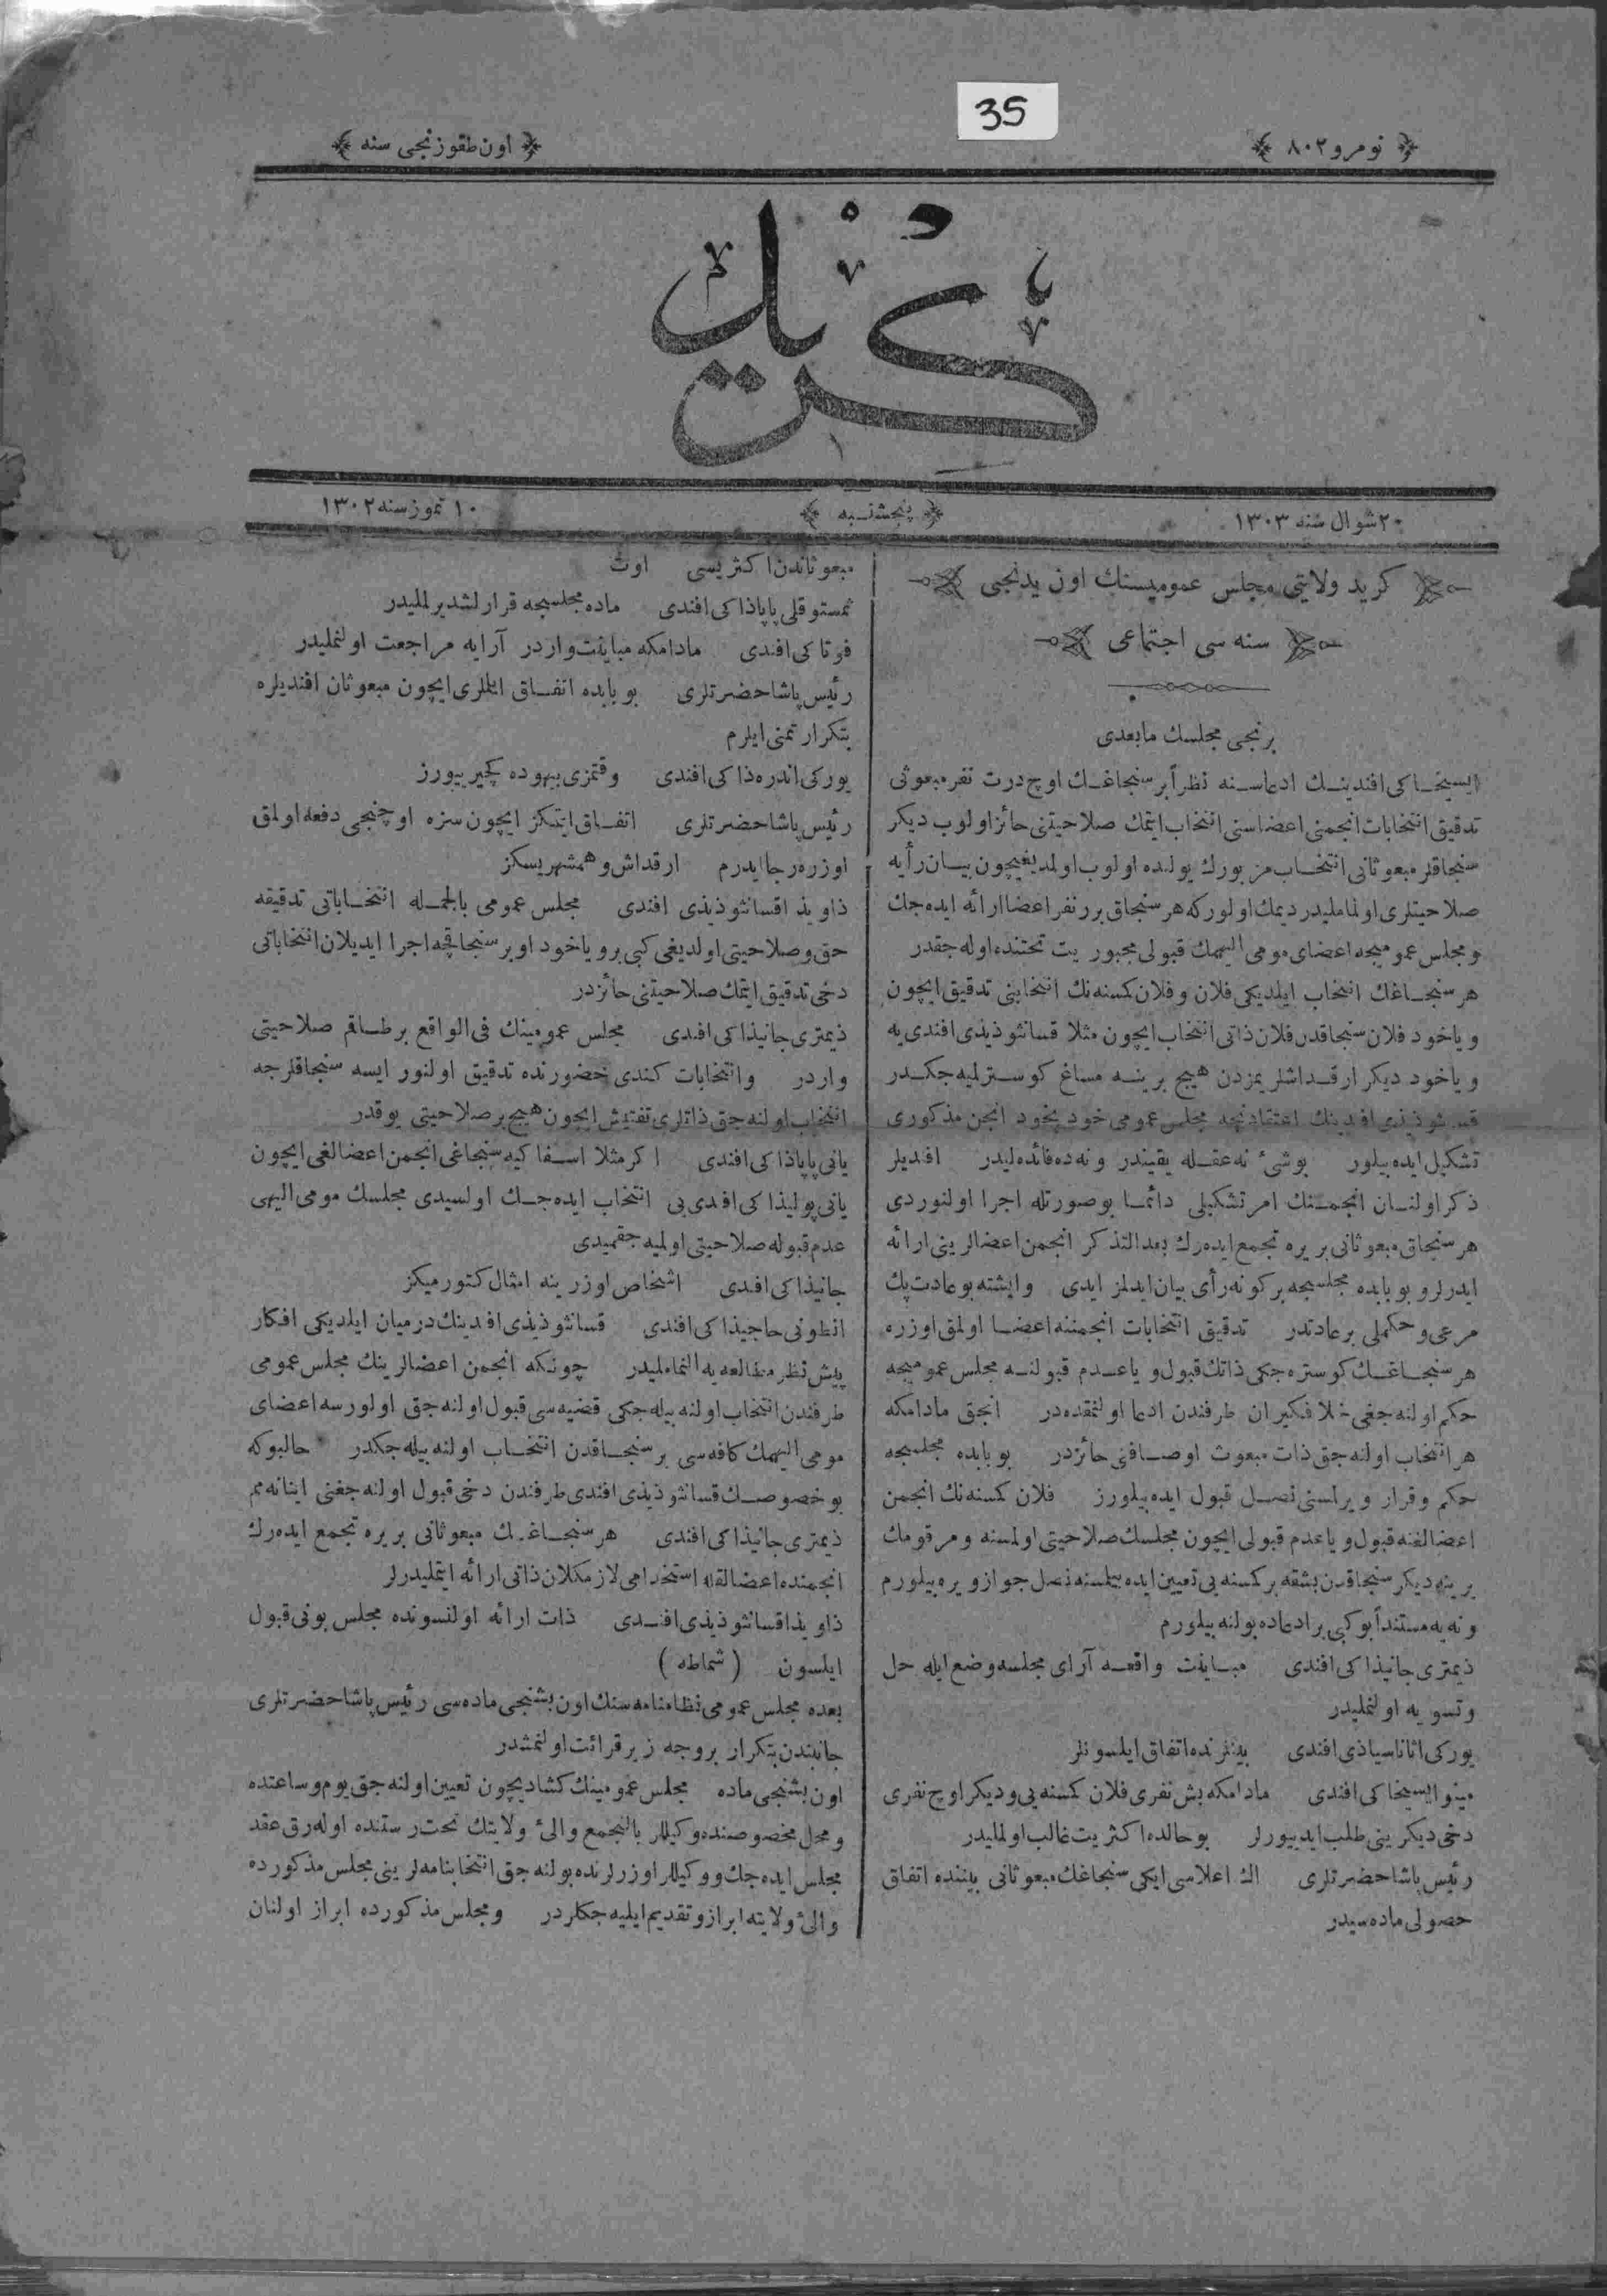 35
نومرو ٨٠٢
اون طقوزنجی سنه
كريد
٢٠ شوال سنه ١٣٠٣
پنجشنبه
١٠ تموز سنه ١٣٠٢
كريد ولايتی مجلس عموميسنك اون يدنجی
سنه سی اجتماعی
برنجی مجلسك مابعدی
افندينك ادعاسنه نظراً بر سنجاغك اوچ درت نفر مبعوثی
تدقيق انتخابات انجمنی اعضاسنی انتخاب ايتمك صلاحيتنی حائز اولوب ديكر
سنجاقلر مبعوثانی انتخاب مزبورك يولنده اولوب اولمديغيچون بيان رأيه
صلاحيتلری اولماملیدر ديمك اولور كه هر سنجاق برر نفر اعضا ارائه ايده جك
و مجلس عموميجه اعضای مومی اليهمك قبولی مجبوريت تحتنده اوله جقدر
هر سنجاغك انتخاب ايلديكی فلان و فلان كمسنه نك انتخابنی تدقيق ايچون
و ياخود فلان سنجاقدر فلان ذاتی انتخاب ايچون مثلا قسانثوذيذی افندی يه
و ياخود ديكر ارقداشلريمزدن هيچ برينه مساغ كوسترلميه جكدر
قسانثوذيذی افندينك اعتقادنجه مجلس عمومی خود بخود انجمن مذكوری
تشكيل ايده بيلور بو شیٔ نه عقله يقيندر و نه ده فائده ليدر افنديلر
ذكر اولنان انجمننك امر تشكيلی دائما بو صورتله اجرا اولنوردی
هر سنجاق مبعوثانی بر يره تجمع ايده رك بعد التذكر انجمن اعضالرينی ارائه
ايدرلر و بو بابده مجلسجه بر كونه رأی بيان ايدلمز ايدی و ايشته بو عادت پك
مرعی و حكملی بر عادتدر تدقيق انتخابات انجمننه اعضا اولمق اوزره
هر سنجاغك كوستره جكی ذاتك قبول و يا عدم قبولنه مجلس عموميجه
حكم اولنه جغی خلافكيران طرفندن ادعا اولنمقده در انجق مادامكه
هر انتخاب اولنه جق ذات مبعوث اوصافنی حائزدر بو بابده مجلسجه
حكم و قرار ويرلمسنی نصل قبول ايده بيلورز فلان كمسنه نك انجمن
اعضالغنه قبول و يا عدم قبولی ايچون مجلسك صلاحيتی اولمسنه و مرقومك
برينه ديكر سنجاقدن بشقه بر كمسنه يی تعيين ايده بيلمسنه نصل جواز ويره بيلورم
و نه يه مستنداً بو كبی بر ادعاده بولنه بيلورم
ذيمتری جانيذاكی افندی مباينت واقعه آرای مجلسه وضع ايله حل
و تسويه اولنمليدر
يوركی اثاناسياذی افندی بينلرنده اتفاق ايلسونلر
افندی مادامكه بش نفری فلان كمسنه يی و ديكر اوچ نفری
دخی ديكرينی طلب ايدييورلر بو حالده اكثريت غالب اولمليدر
رئيس پاشا حضرتلری اك اعلاسی ايكی سنجاغك مبعوثانی بيننده اتفاق
حصولی ماده سيدر
مبعوثاندن اكثريسی اوت
ثمستوقلی پاپاذاكی افندی ماده مجلسجه قرارلشديرلمليدر
فوتاكی افندی مادامكه مباينت واردر آرايه مراجعت اولنمليدر
رئيس پاشا حضرتلری بو بابده اتفاق ايلملری ايچون مبعوثان افنديلره
بتكرار تمنی ايلرم
يوركی اندره ذاكی افندی وقتمزی بيهوده كچيرييورز
رئيس پاشا حضرتلری اتفاق ايتمكز ايچون سزه اوچنجی دفعه اولمق
اوزره رجا ايدرم ارقداش و همشهريسكز
ذاويذ اقسانثوذيذی افندی مجلس عمومی بالجمله انتخاباتی تدقيقه
حق و صلاحيتی اولديغی كبی برو ياخود اوبر سنجاقچه اجرا ايديلان انتخاباتی
دخی تدقيق ايتمك صلاحيتنی حائزدر
ذيمتری جانيذاكی افندی مجلس عمومينك فی الواقع بر طاقم صلاحيتی
واردر و انتخابات كندی حضورنده تدقيق اولنور ايسه سنجاقلرجه
انتخاب اولنه جق ذاتلری تفتيش ايچون هيچ بر صلاحيتی يوقدر
يانی پاپاذاكی افندی اكر مثلا اسفاكيه سنجاغی انجمن اعضالغی ايچون
يانی پوليذاكی افندی يی انتخاب ايده جك اولسيدی مجلسك مومی اليهی
عدم قبوله صلاحيتی اولميه جقميدی
جانيذاكی افندی اشخاص اوزرينه امثال كتورميكز
انطونی حاجيذاكی افندی قسانثوذيذی افندينك درميان ايلديكی افكار
پيش نظر مطالعه يه النماملیدر چونكه انجمن اعضالرينك مجلس عمومی
طرفندن انتخاب اولنه بيله جكی قضيه سی قبول اولنه جق اولورسه اعضای
مومی اليهمك كافه سی بر سنجاقدن انتخاب اولنه بيله جكدر حالبوكه
بو خصوصك قسانثوذيذی افندی طرفندن دخی قبول اولنه جغنی اينانه مم
ذيمتری جانيذاكی افندی هر سنجاغك مبعوثانی بر يره تجمع ايده رك
انجمنده اعضالقله استخدامی لازمكلان ذاتی ارائه ايتمليدرلر
ذاويذ اقسانثوذيذی افندی ذات ارائه اولنسونده مجلس بونی قبول
ايلسون (شماطه)
بعده مجلس عمومی نظامنامه سنك اون بشنجی ماده سی رئيس پاشا حضرتلری
جانبندن بتكرار بروجه زير قرائت اولنمشدر
اون بشنجی ماده مجلس عمومينك كشاديچون تعيين اولنه جق يوم و ساعتده
و محل مخصوصنده وكيللر بالتجمع والیٔ ولايتك تحت رياستنده اوله رق عقد
مجلس ايده جك و وكيللر اوزرلرنده بولنه جق انتخابنامه لرينی مجلس مذكورده
والیٔ ولايته ابراز و تقديم ايليه جكلردر و مجلس مذكورده ابراز اولنان